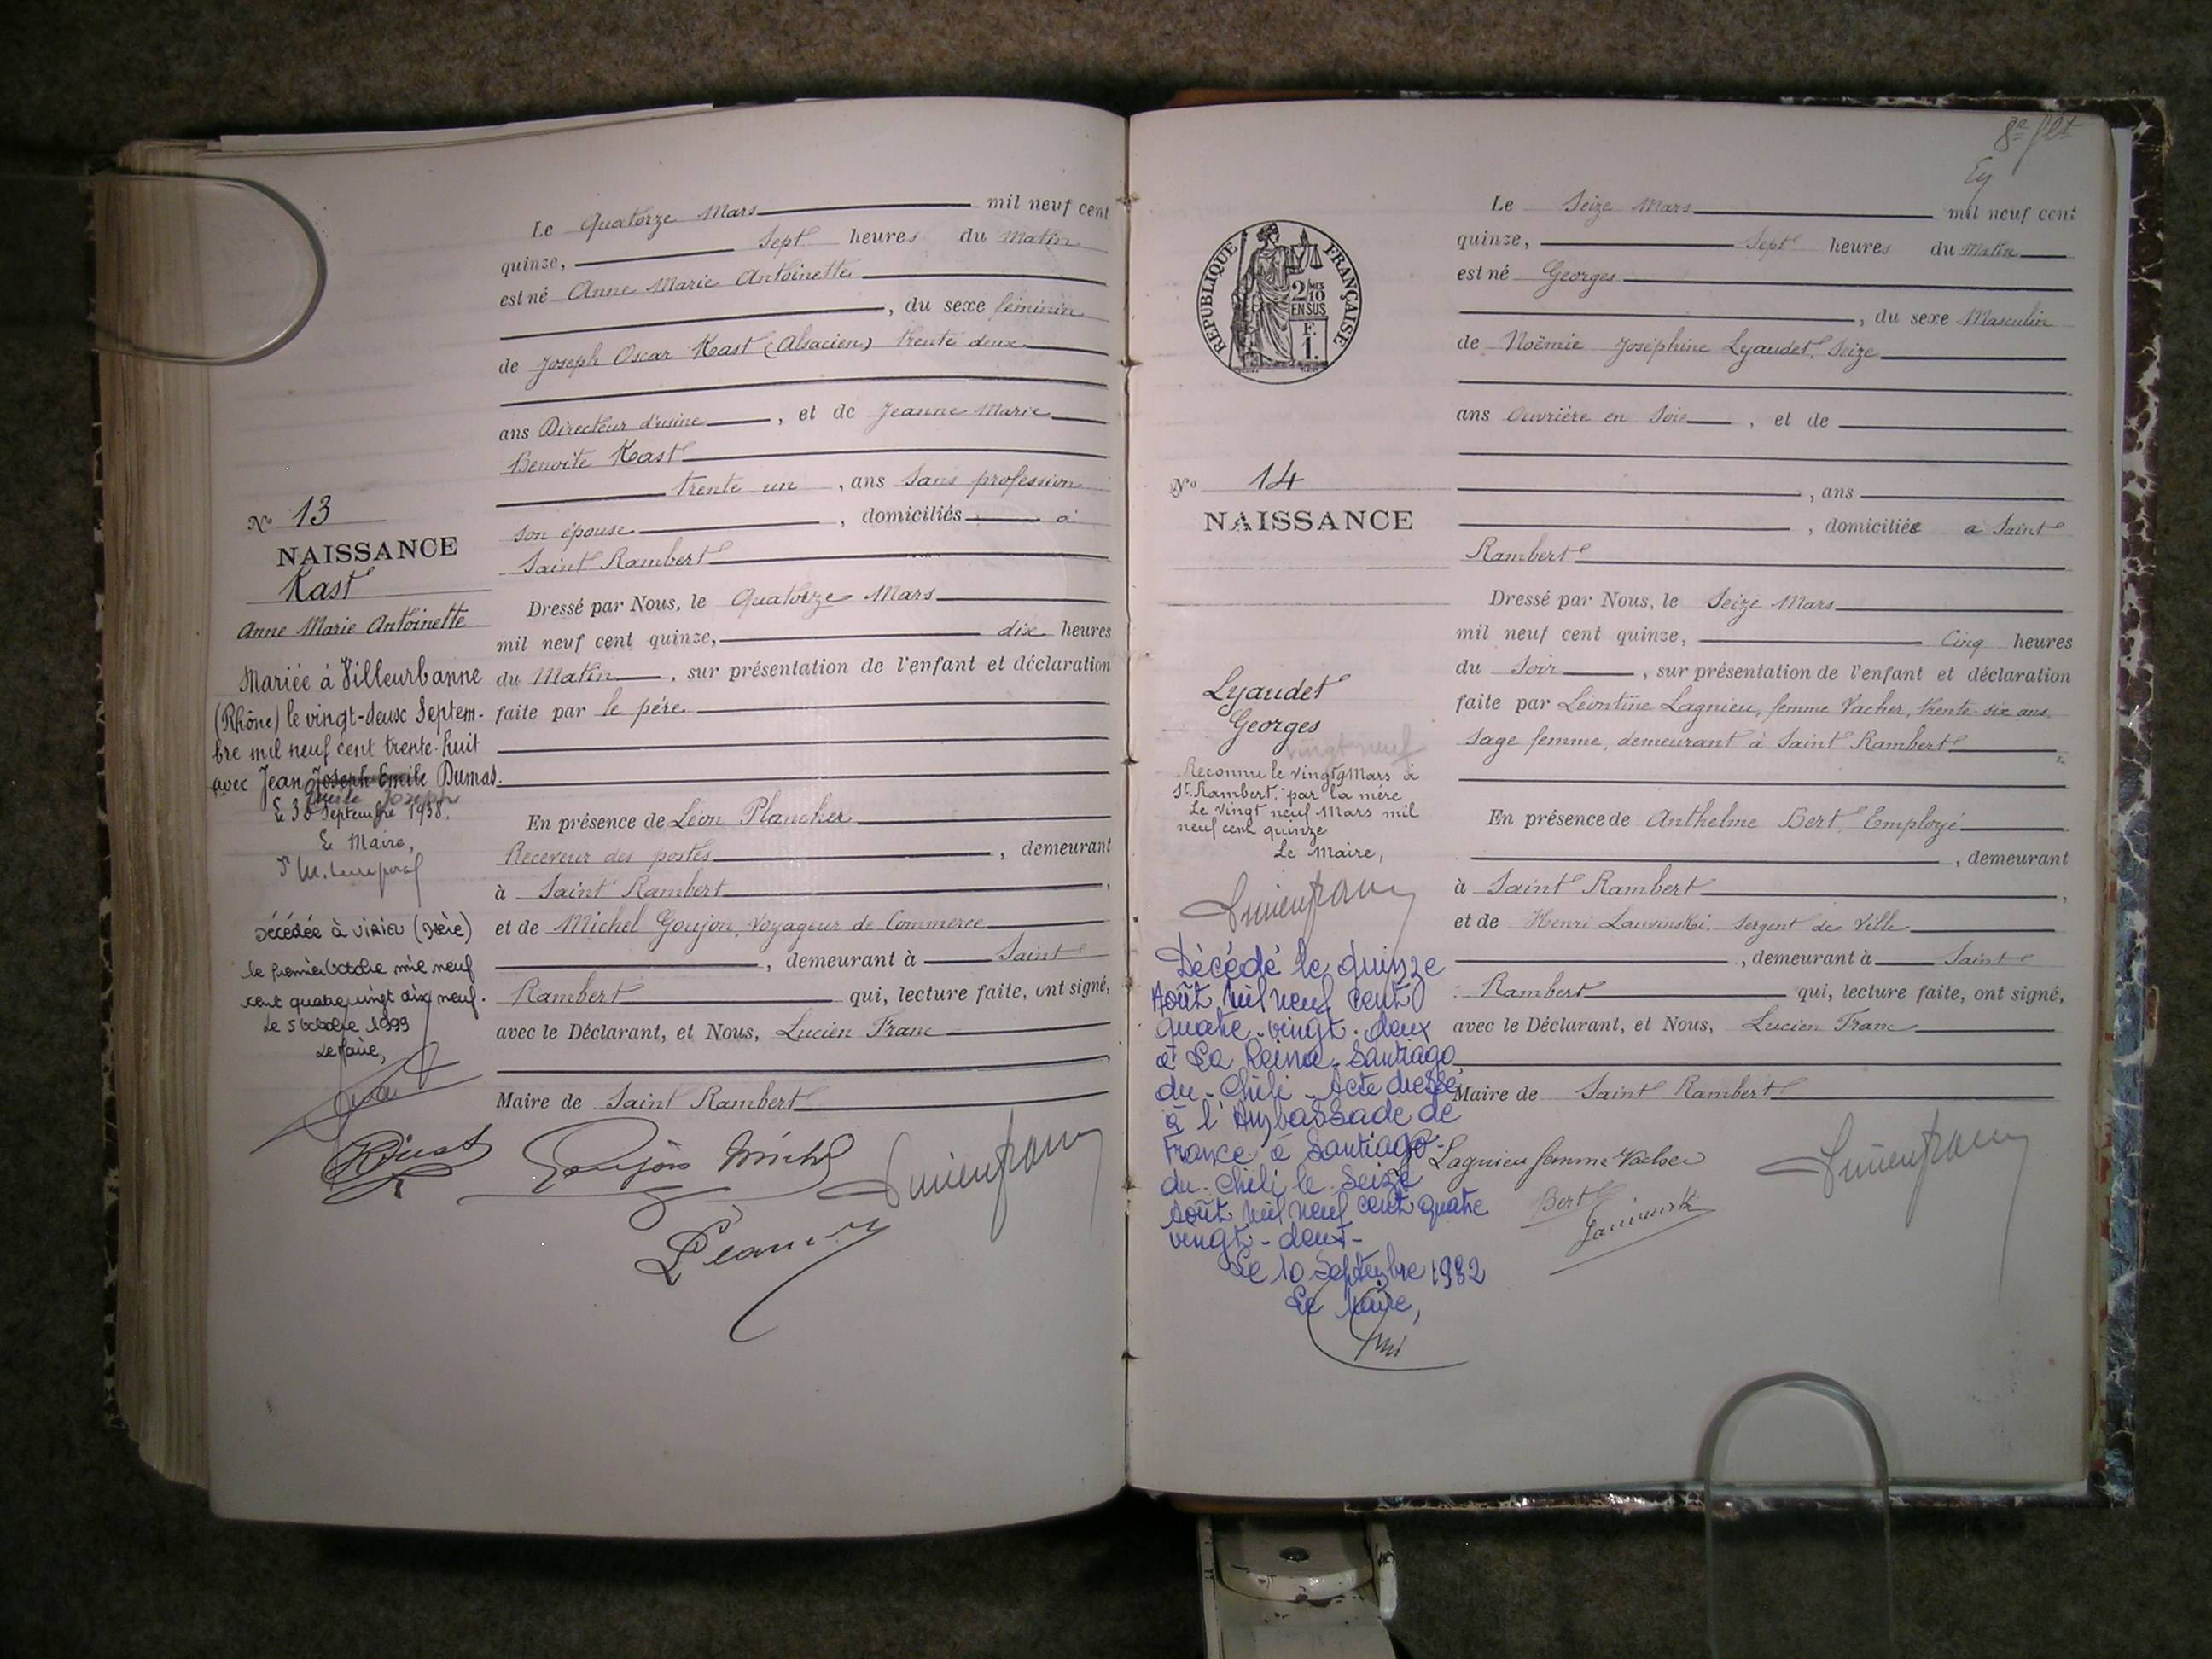 Le Quatorze Mars mil neuf cent
quinze, Sept heures du Matin
est né Anne Marie Antoinette
, du sexe féminin
de Joseph Oscar Kast (Alsacien) trente deux
ans Directeur d'usine , et de Jeanne Marie
Benoite Kast
trente un , ans Sans profession
son épouse , domiciliés à
Saint Rambert
Dressé par Nous, le Quatorze Mars
mil neuf cent quinze, dix heures
du Matin , sur présentation de l'enfant et déclaration
faite par le père
En présence de Léon Plancher
Receveur des postes , demeurant
à Saint Rambert ,
et de Michel Goujon, Voyageur de Commerce
, demeurant à Saint
Rambert qui, lecture faite, ont signé,
avec le Déclarant, et Nous, Lucien Franc
Maire de Saint Rambert
No 13
NAISSANCE
Kast
Anne Marie Antoinette
Mariée à Villeurbanne
(Rhône) le vingt-deux Septem-
bre mil neuf cent trente-huit
avec Jean Joseph Emile Dumas.
Emile Joseph
Le 30 Septembre 1938.
Le Maire,
Décédée à Virieu (Isère)
le premier Octobre mil neuf
cent quatre vingt dix neuf.
Le 5 Octobre 1999
Le Maire,
Goujon Michel
Lucien franc
8e flt
REPUBLIQUE FRANÇAISE
2/10
EN SUS
F.
1.
Le Seize Mars mil neuf cent
quinze, Sept heures du Matin
est né Georges
, du sexe Masculin
de Noëmie Joséphine Lyaudet, Seize
ans Ouvrière en Soie , et de
, ans
, domiciliée a Saint
Rambert
Dressé par Nous, le Seize Mars
mil neuf cent quinze, Cinq heures
du Soir , sur présentation de l'enfant et déclaration
faite par Léontine Lagnieu, femme Vacher, trente six ans
Sage femme, demeurant à Saint Rambert
En présence de Anthelme Bert, Employé
, demeurant
à Saint Rambert ,
et de Henri Lauvinski, Sergent de Ville
, demeurant à Saint
Rambert qui, lecture faite, ont signé,
avec le Déclarant, et Nous, Lucien Franc
Maire de Saint Rambert
No 14
NAISSANCE
Lyaudet
Georges
vingt neuf
Reconnu le vingt 9 Mars à
St. Rambert, par la mère
Le Vingt neuf Mars mil
neuf cent quinze
Le Maire,
Lucien franc
Décédé le quinze
Août mil neuf cent
quatre-vingt-deux
à La Reina-Santiago
du-Chili - Acte dressé
à l'Ambassade de
France à Santiago-
du-Chili le Seize
Août mil neuf cent quatre
vingt-deux-
Le 10 Septembre 1982
Le Maire,
Lagnieu femme Vacher
Bert
Lucien franc